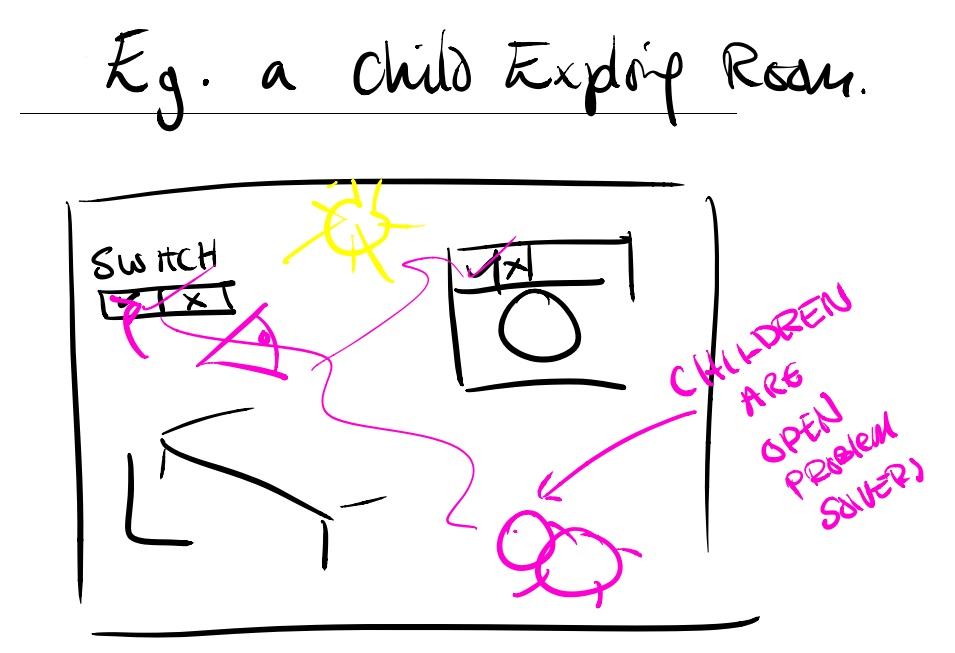 Eg. a Child Exploring Room.
SWITCH
✓ X
✓ X
CHILDREN
ARE
OPEN
PROBLEM
SOLVERS